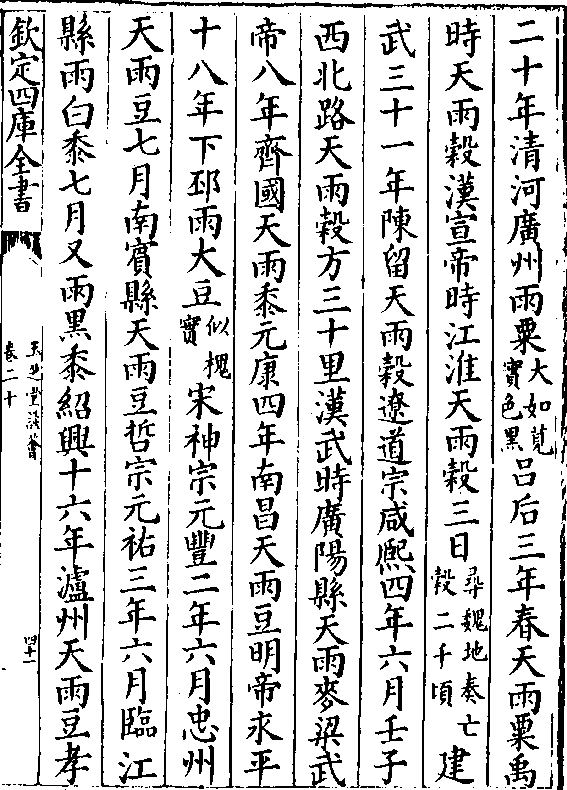 二十年清河廣州雨粟大如莧實色黑呂后三年春天雨粟禹
時天雨穀漢宣帝時江淮天雨穀三日尋魏地奏亡穀二千頃建
武三十一年陳留天雨穀遼道宗咸熈四年六月壬子
西北路天雨穀方三十里漢武時廣陽縣天雨麥梁武
帝八年齊國天雨黍元康四年南昌天雨豆明帝永平
十八年下邳雨大豆似槐實宋神宗元豐二年六月忠州
天雨豆七月南賓縣天雨豆哲宗元祐三年六月臨江
縣雨白黍七月又雨黑黍紹興十六年瀘州天雨豆孝
欽定四庫全書
玉芝堂談薈
卷二十
四十一